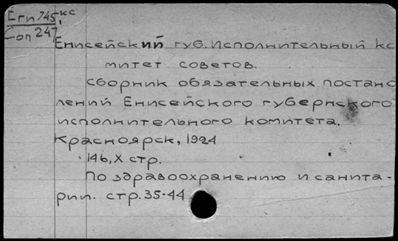 Егп 745, кс
Соп 247
Енисейский губ. Исполнительный ко
митет советов.
Сборник обязательных постанов
лений Енисейского губернского
исполнительного комитета.
Красноярск, 1924
146, X стр.
По здравоохранению и санита-
рии. стр. 35-44